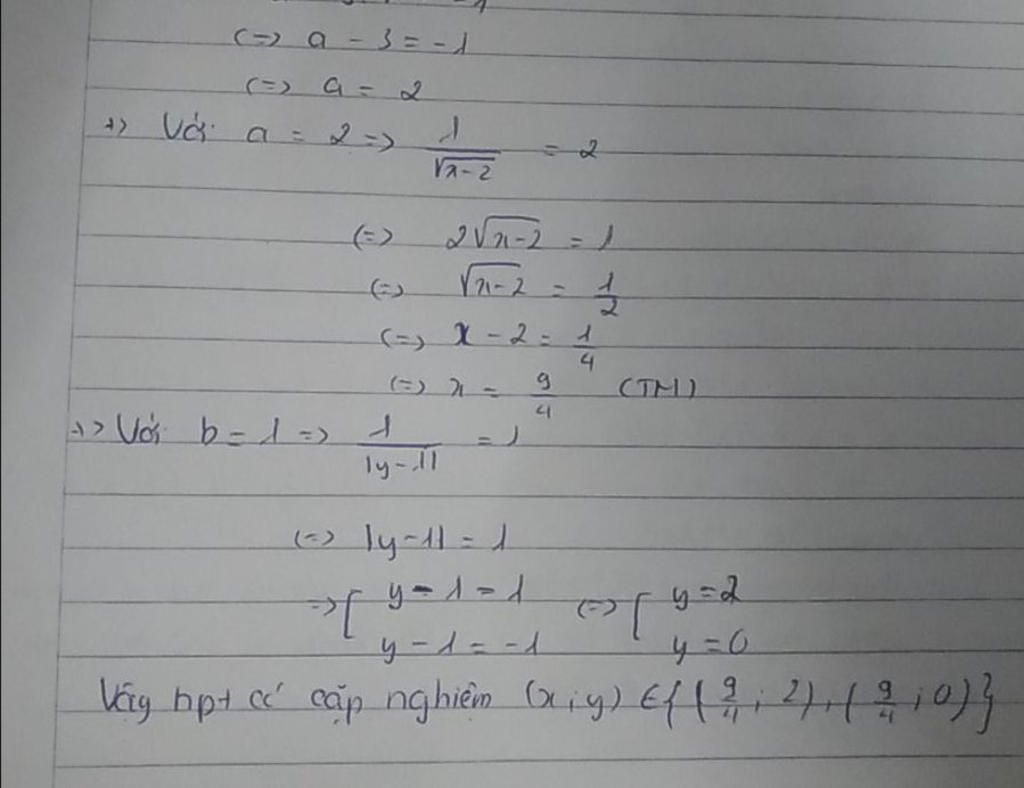 (=) a - 3 = -1
(=) a = 2
+) Với a = 2 => 1/√(x-2) = 2
(=) 2√(x-2) = 1
(=) √(x-2) = 1/2
(=) x - 2 = 1/4
(=) x = 9/4 (TM)
+) Với b = 1 => 1/|y-1| = 1
(=) |y-1| = 1
=> [ y - 1 = 1 (=) [ y = 2
y - 1 = -1 y = 0
Vậy hpt có cặp nghiệm (x; y) ∈ { (9/4; 2), (9/4; 0) }